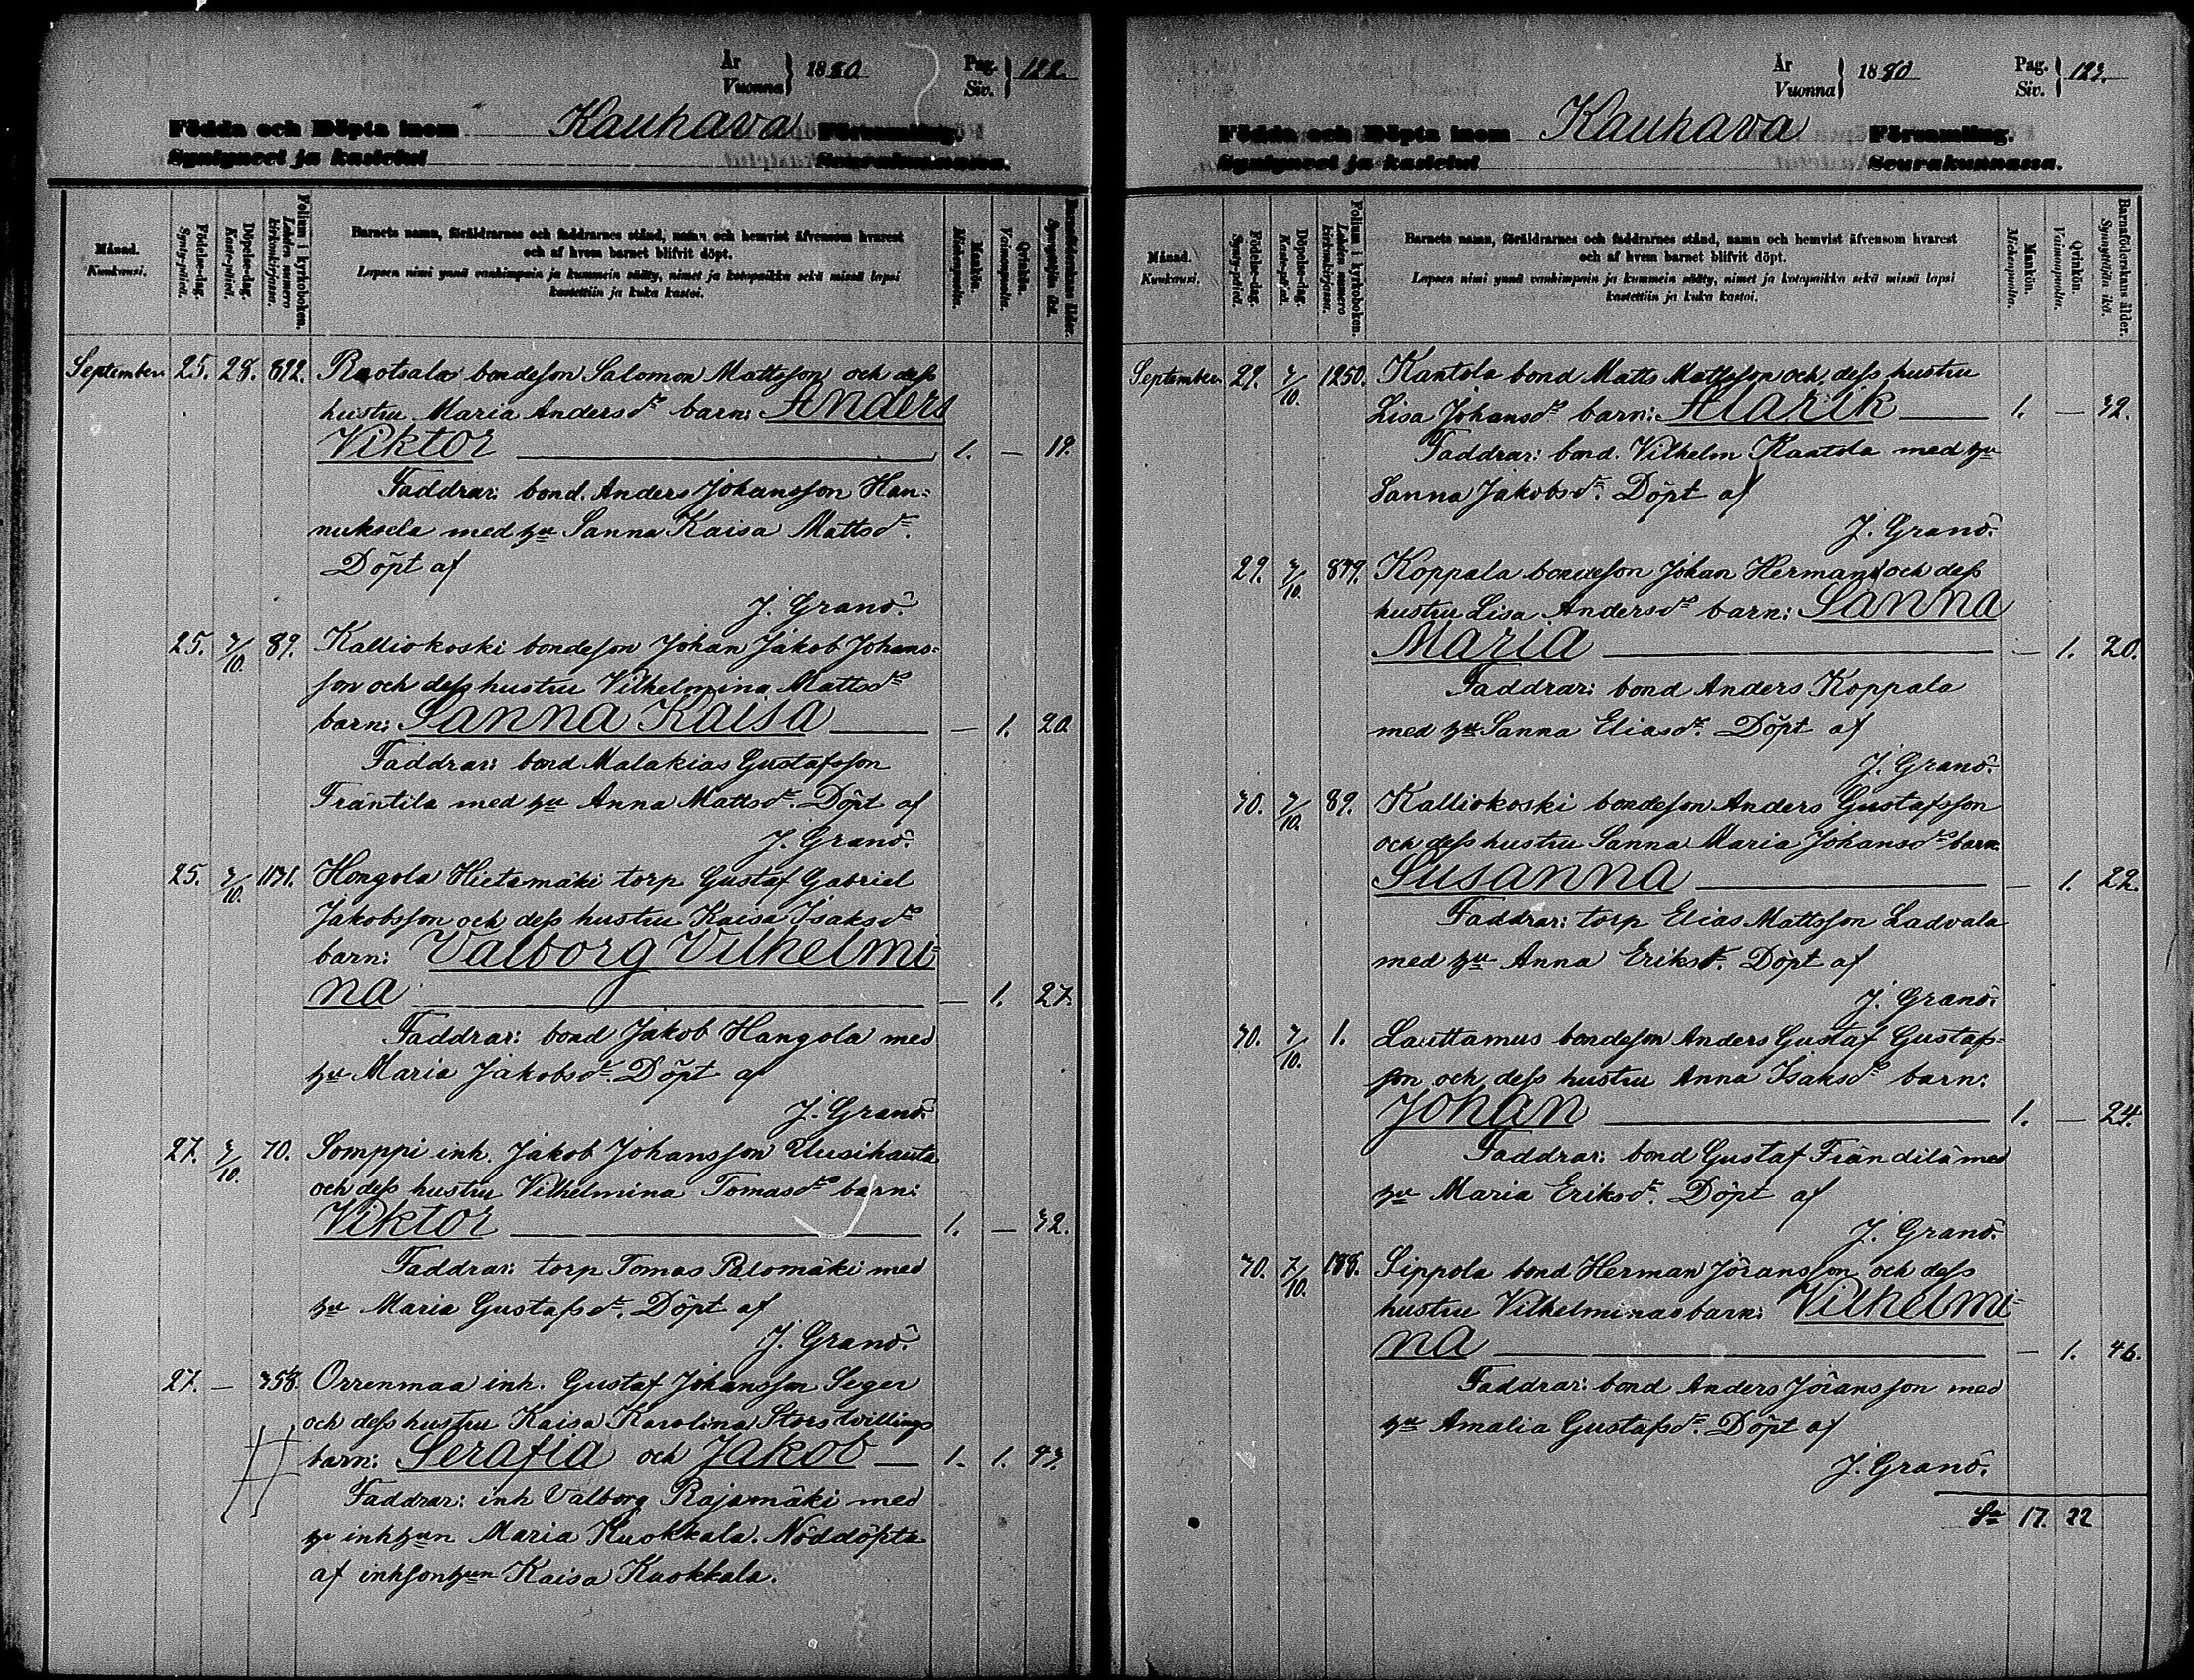 År
Vuonna } 1880 Pag.
Siv. } 122.
Födda och Döpta inom Kauhava Församling.
Syntyneet ja kastetut Seurakunnassa.
Månad.
Kuukausi.
Födelse-dag.
Synty-päivä.
Döpelse-dag.
Kaste-päivä.
Folium i kyrkoboken.
Lehden numero
kirkonkirjassa.
Barnets namn, föräldrarnes och faddrarnes stånd, namn och hemvist äfvensom hvarest
och af hvem barnet blifvit döpt.
Lapsen nimi ynnä vanhimpain ja kummein sääty, nimet ja kotopaikka sekä missä lapsi
kastettiin ja kuka kastoi.
Mankön.
Miehenpuolta.
Qvinkön.
Vaimonpuolta.
Barnaföderskans ålder.
Synnyttäjän ikä.
September 25. 28. 892. Ruotsala bondeson Salomon Mattsson och dess
hustru Maria Andersdr barn: Anders
Viktor 1. — 19.
Faddrar: bond. Anders Johansson Han=
nuksela med hu Sanna Kaisa Mattsdr.
Döpt af
J. Granö.
25. 3/10. 89. Kalliokoski bondeson Johan Jakob Johans=
son och dess hustru Vilhelmina Mattsdr
barn: Sanna Kaisa — 1. 20.
Faddrar: bond Malakias Gustafsson
Fräntilä med hu Anna Mattsdr. Döpt af
J. Granö.
25. 3/10. 1171. Hongola Hietamäki torp Gustaf Gabriel
Jakobsson och dess hustru Kaisa Isaksdr
barn: Valborg Vilhelmi=
na — 1. 27.
Faddrar: bond Jakob Hangola med
hu Maria Jakobsdr. Döpt af
J. Granö.
27. 3/10. 70. Somppi inh. Jakob Johansson Uusihauta
och dess hustru Vilhelmina Tomasdr barn:
Viktor 1. — 32.
Faddrar: torp Tomas Palomäki med
hu Maria Gustafsdr. Döpt af
J. Granö.
27. — 358. Orrenmaa inh. Gustaf Johansson Seger
och dess hustru Kaisa Karolina Stors tvillings
barn: Serafia och Jakob — 1. 1. 43.
Faddrar: inh Valborg Rajamäki med
hu inhhun Maria Kuokkala. Nöddöpta
af inhsonhun Kaisa Kuokkala.
År
Vuonna } 1880 Pag.
Siv. } 123.
Födda och Döpta inom Kauhava Församling.
Syntyneet ja kastetut Seurakunnassa.
Månad.
Kuukausi.
Födelse-dag.
Synty-päivä.
Döpelse-dag.
Kaste-päivä.
Folium i kyrkoboken.
Lehden numero
kirkonkirjassa.
Barnets namn, föräldrarnes och faddrarnes stånd, namn och hemvist äfvensom hvarest
och af hvem barnet blifvit döpt.
Lapsen nimi ynnä vanhimpain ja kummein sääty, nimet ja kotopaikka sekä missä lapsi
kastettiin ja kuka kastoi.
Mankön.
Miehenpuolta.
Qvinkön.
Vaimonpuolta.
Barnaföderskans ålder.
Synnyttäjän ikä.
September. 29. 3/10. 1250. Kantola bond Matts Mattsson och dess hustru
Lisa Johansdr barn: Alarik 1. — 32.
Faddrar: bond. Vilhelm Kantola med hu
Sanna Jakobsdr. Döpt af
J. Granö.
29. 3/10. 879. Koppala bondeson Johan Herman och dess
hustru Lisa Andersdr barn: Sanna
Maria — 1. 20.
Faddrar: bond Anders Koppala
med hu Sanna Eliasdr. Döpt af
J. Granö.
30. 3/10. 89. Kalliokoski bondeson Anders Gustafsson
och dess hustru Sanna Maria Johansdr barn
Susanna — 1. 22.
Faddrar: torp Elias Mattsson Ladvala
med hu Anna Eriksdr. Döpt af
J. Granö.
30. 3/10. 1. Lauttamus bondeson Anders Gustaf Gustafs=
son och dess hustru Anna Isaksdr barn:
Johan 1. — 24.
Faddrar: bond Gustaf Frändilä med
hu Maria Eriksdr. Döpt af
J. Granö.
30. 3/10. 188. Sippola bond Herman Jöransson och dess
hustru Vilhelminas barn: Vilhelmi=
na — 1. 46.
Faddrar: bond Anders Jöransson med
hu Amalia Gustafsdr. Döpt af
J. Granö.
Sa 17. 22